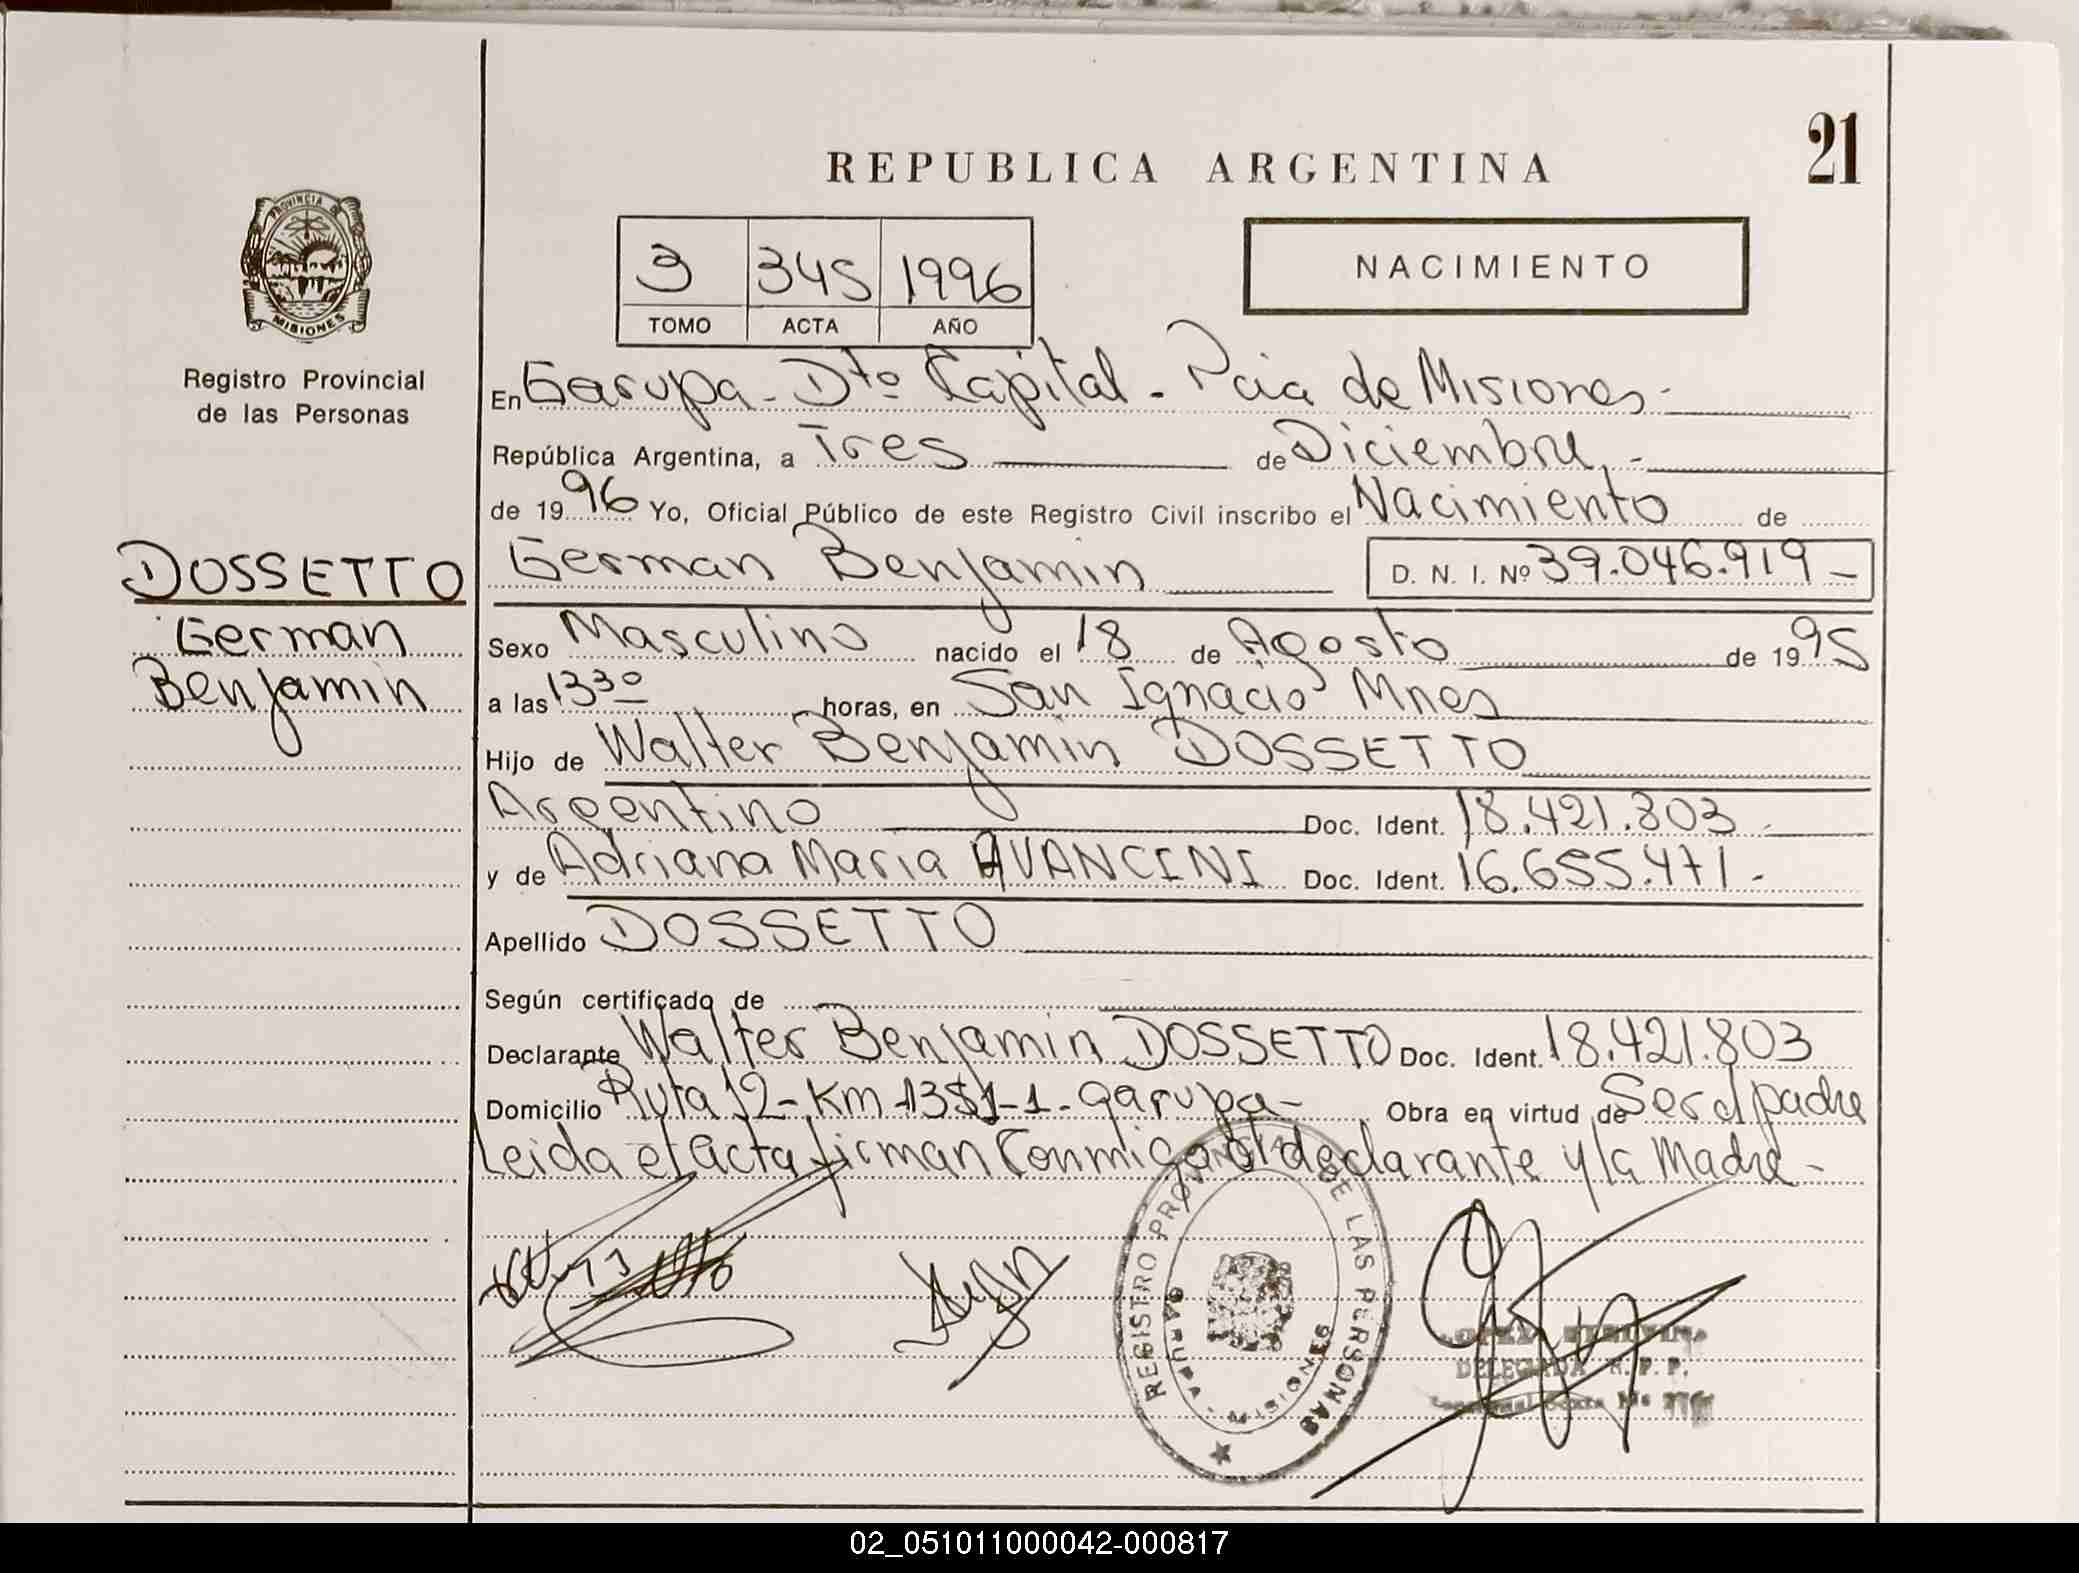 REPUBLICA ARGENTINA
21
PROVINCIA DE
MISIONES
Registro Provincial
de las Personas
3 345 1996
TOMO ACTA AÑO
NACIMIENTO
En Garupa - Dto Capital - Pcia de Misiones -
República Argentina, a Tres de Diciembre, -
de 1996 Yo, Oficial Público de este Registro Civil inscribo el Nacimiento de
DOSSETTO
German
Benjamin
German Benjamin D. N. I. Nº 39.046.919 -
Sexo Masculino nacido el 18 de Agosto de 1995
a las 13 30 horas, en San Ignacio Mnes
Hijo de Walter Benjamin DOSSETTO
Argentino Doc. Ident. 18.421.803 -
y de Adriana Maria AVANCINI Doc. Ident. 16.655.471 -
Apellido DOSSETTO
Según certificado de
Declarante Walter Benjamin DOSSETTO Doc. Ident. 18.421.803
Domicilio Ruta 12 - Km - Garupa - Obra en virtud de Ser el padre
Leida el acta firman Conmigo el declarante y la Madre -
REGISTRO PROVINCIAL DE LAS PERSONAS
GARUPA - MISIONES
DELEGADA R. P. P.
02_051011000042-000817